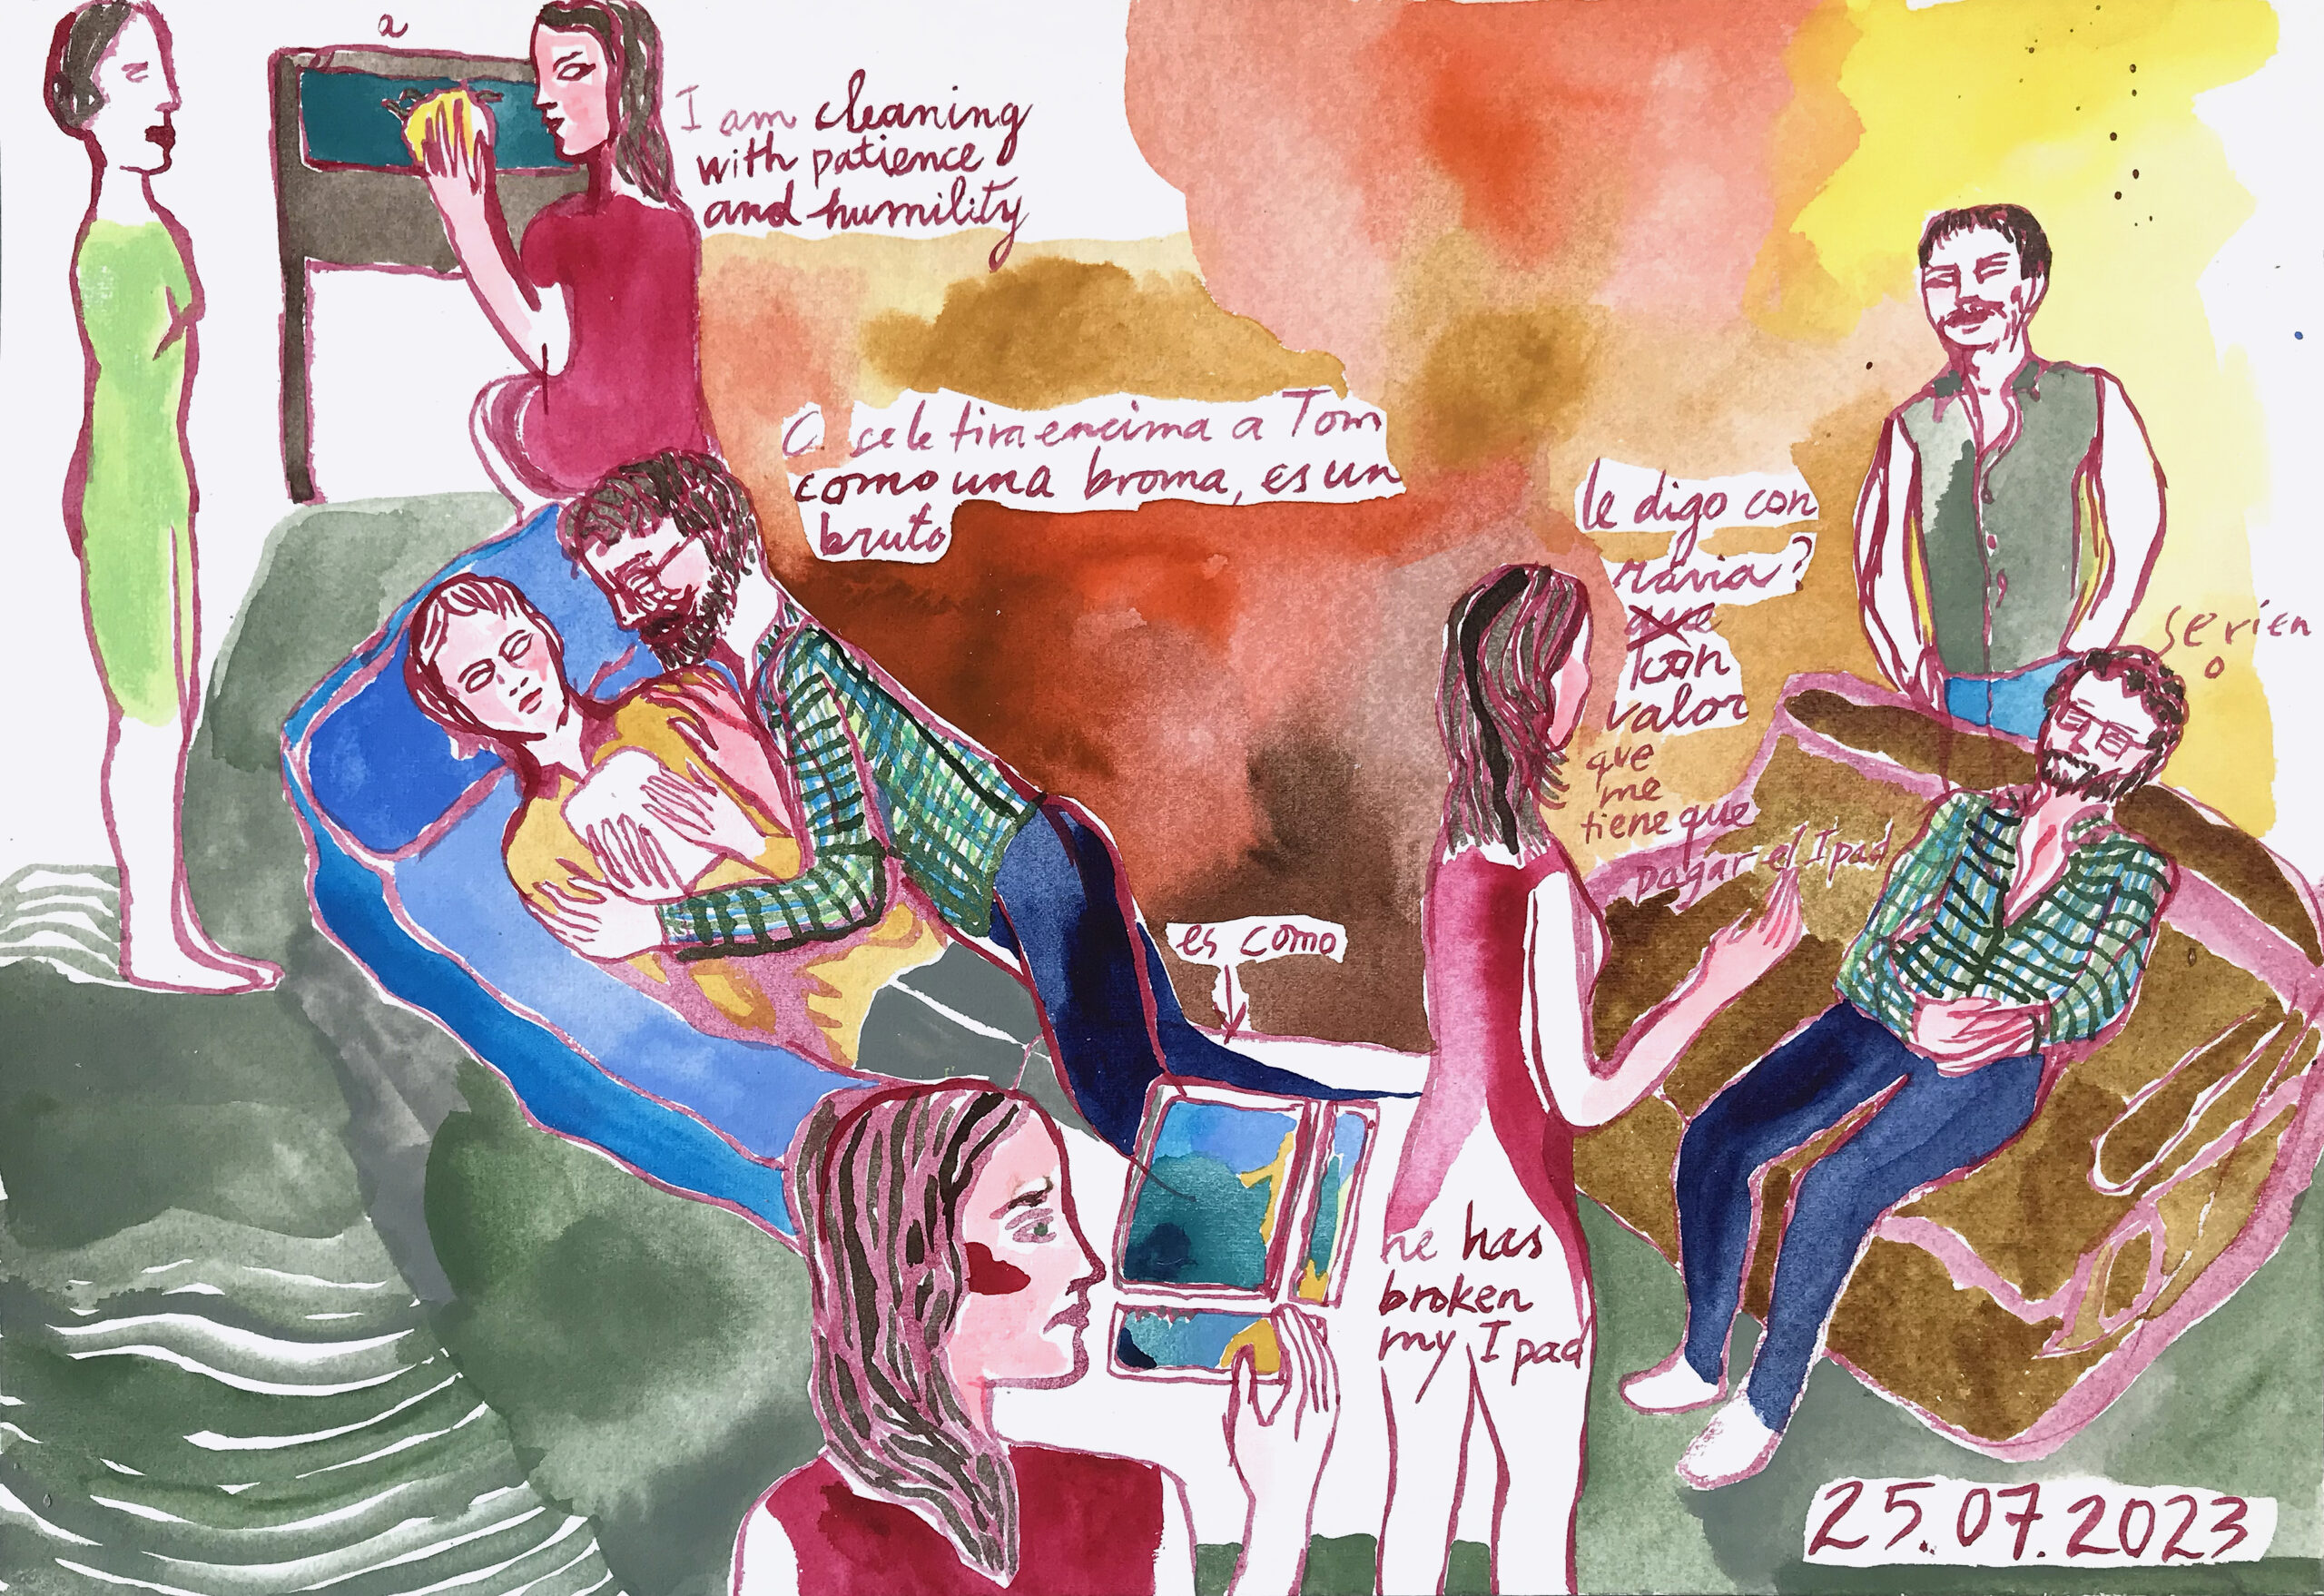 a
I am cleaning
with patience
and humility
O se le tira encima a Tom
como una broma, es un
bruto
le digo con
ravia?
que
con
valor
que
me
tiene que
pagar el Ipad
se ríen
o
es como
he has
broken
my Ipad
25.07.2023